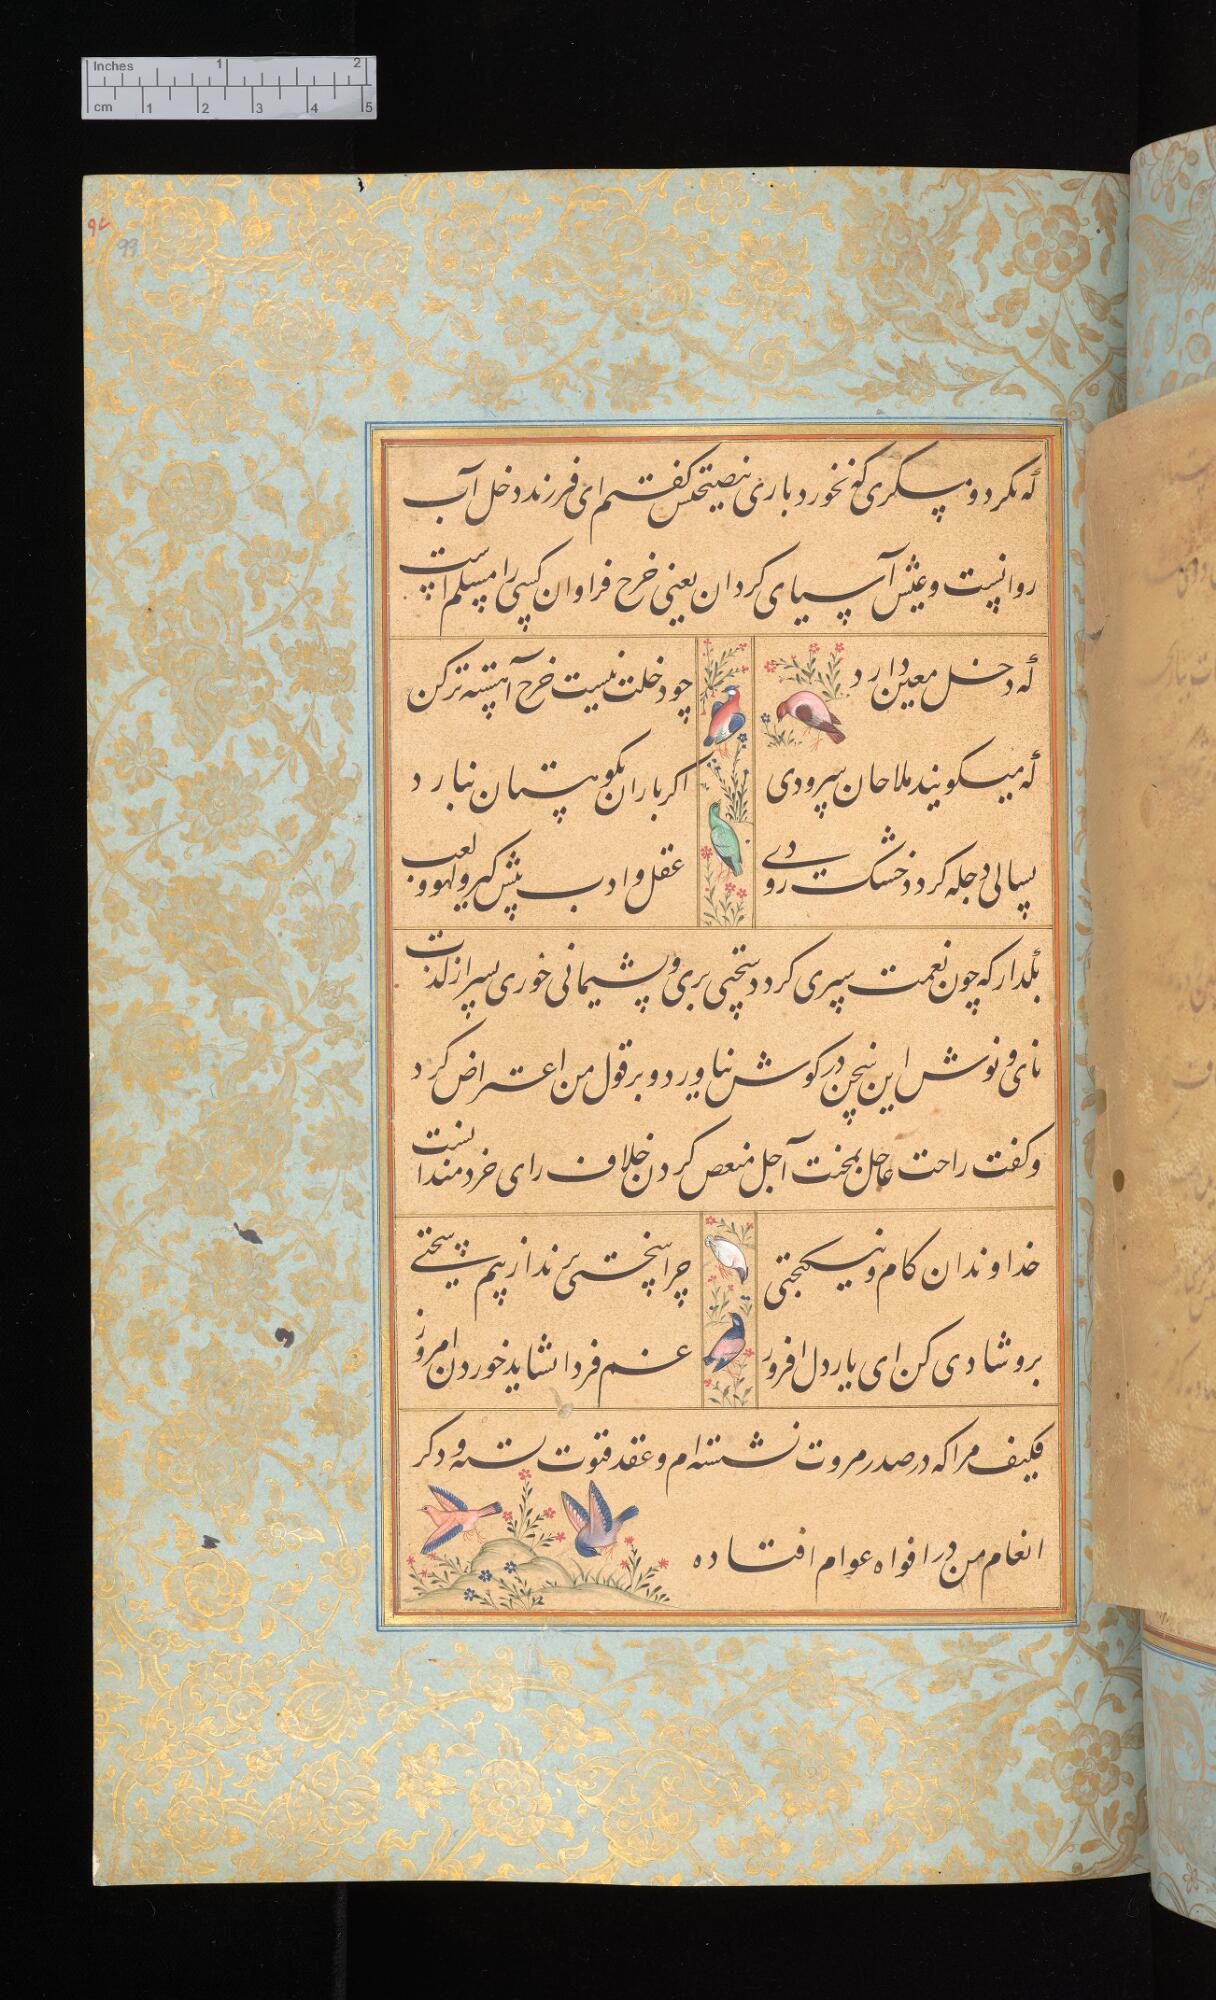 Inches 1 2
cm 1 2 3 4 5
99
که نکرد و مسکری که نخورد باری بنصیحتش گفتم ای فرزند دخل آب
روانست و عیش آسیای گردان یعنی خرج فراوان کسی را مسلم است
که دخل معین دارد
چو دخلت نیست خرج آهسته‌تر کن
که میگویند ملاحان سرودی
اگر باران بکوهستان نبارد
بسالی دجله گردد خشک رودی
عقل و ادب پیش گیر و لهو و لعب
بگذار که چون نعمت سپری گردد سختی بری و پشیمانی خوری پسر از لذت
نای و نوش این سخن در گوش نیاورد و بر قول من اعتراض کرد
و گفت راحت عاجل بمحنت آجل منغص کردن خلاف رای خردمندانست
خداوندان کام و نیکبختی
چرا سختی برند از بیم سختی
برو شادی کن ای یار دل‌افروز
غم فردا نشاید خوردن امروز
فکیف مرا که در صدر مروت نشسته‌ام و عقد فتوت بسته و ذکر
انعام من در افواه عوام افتاده